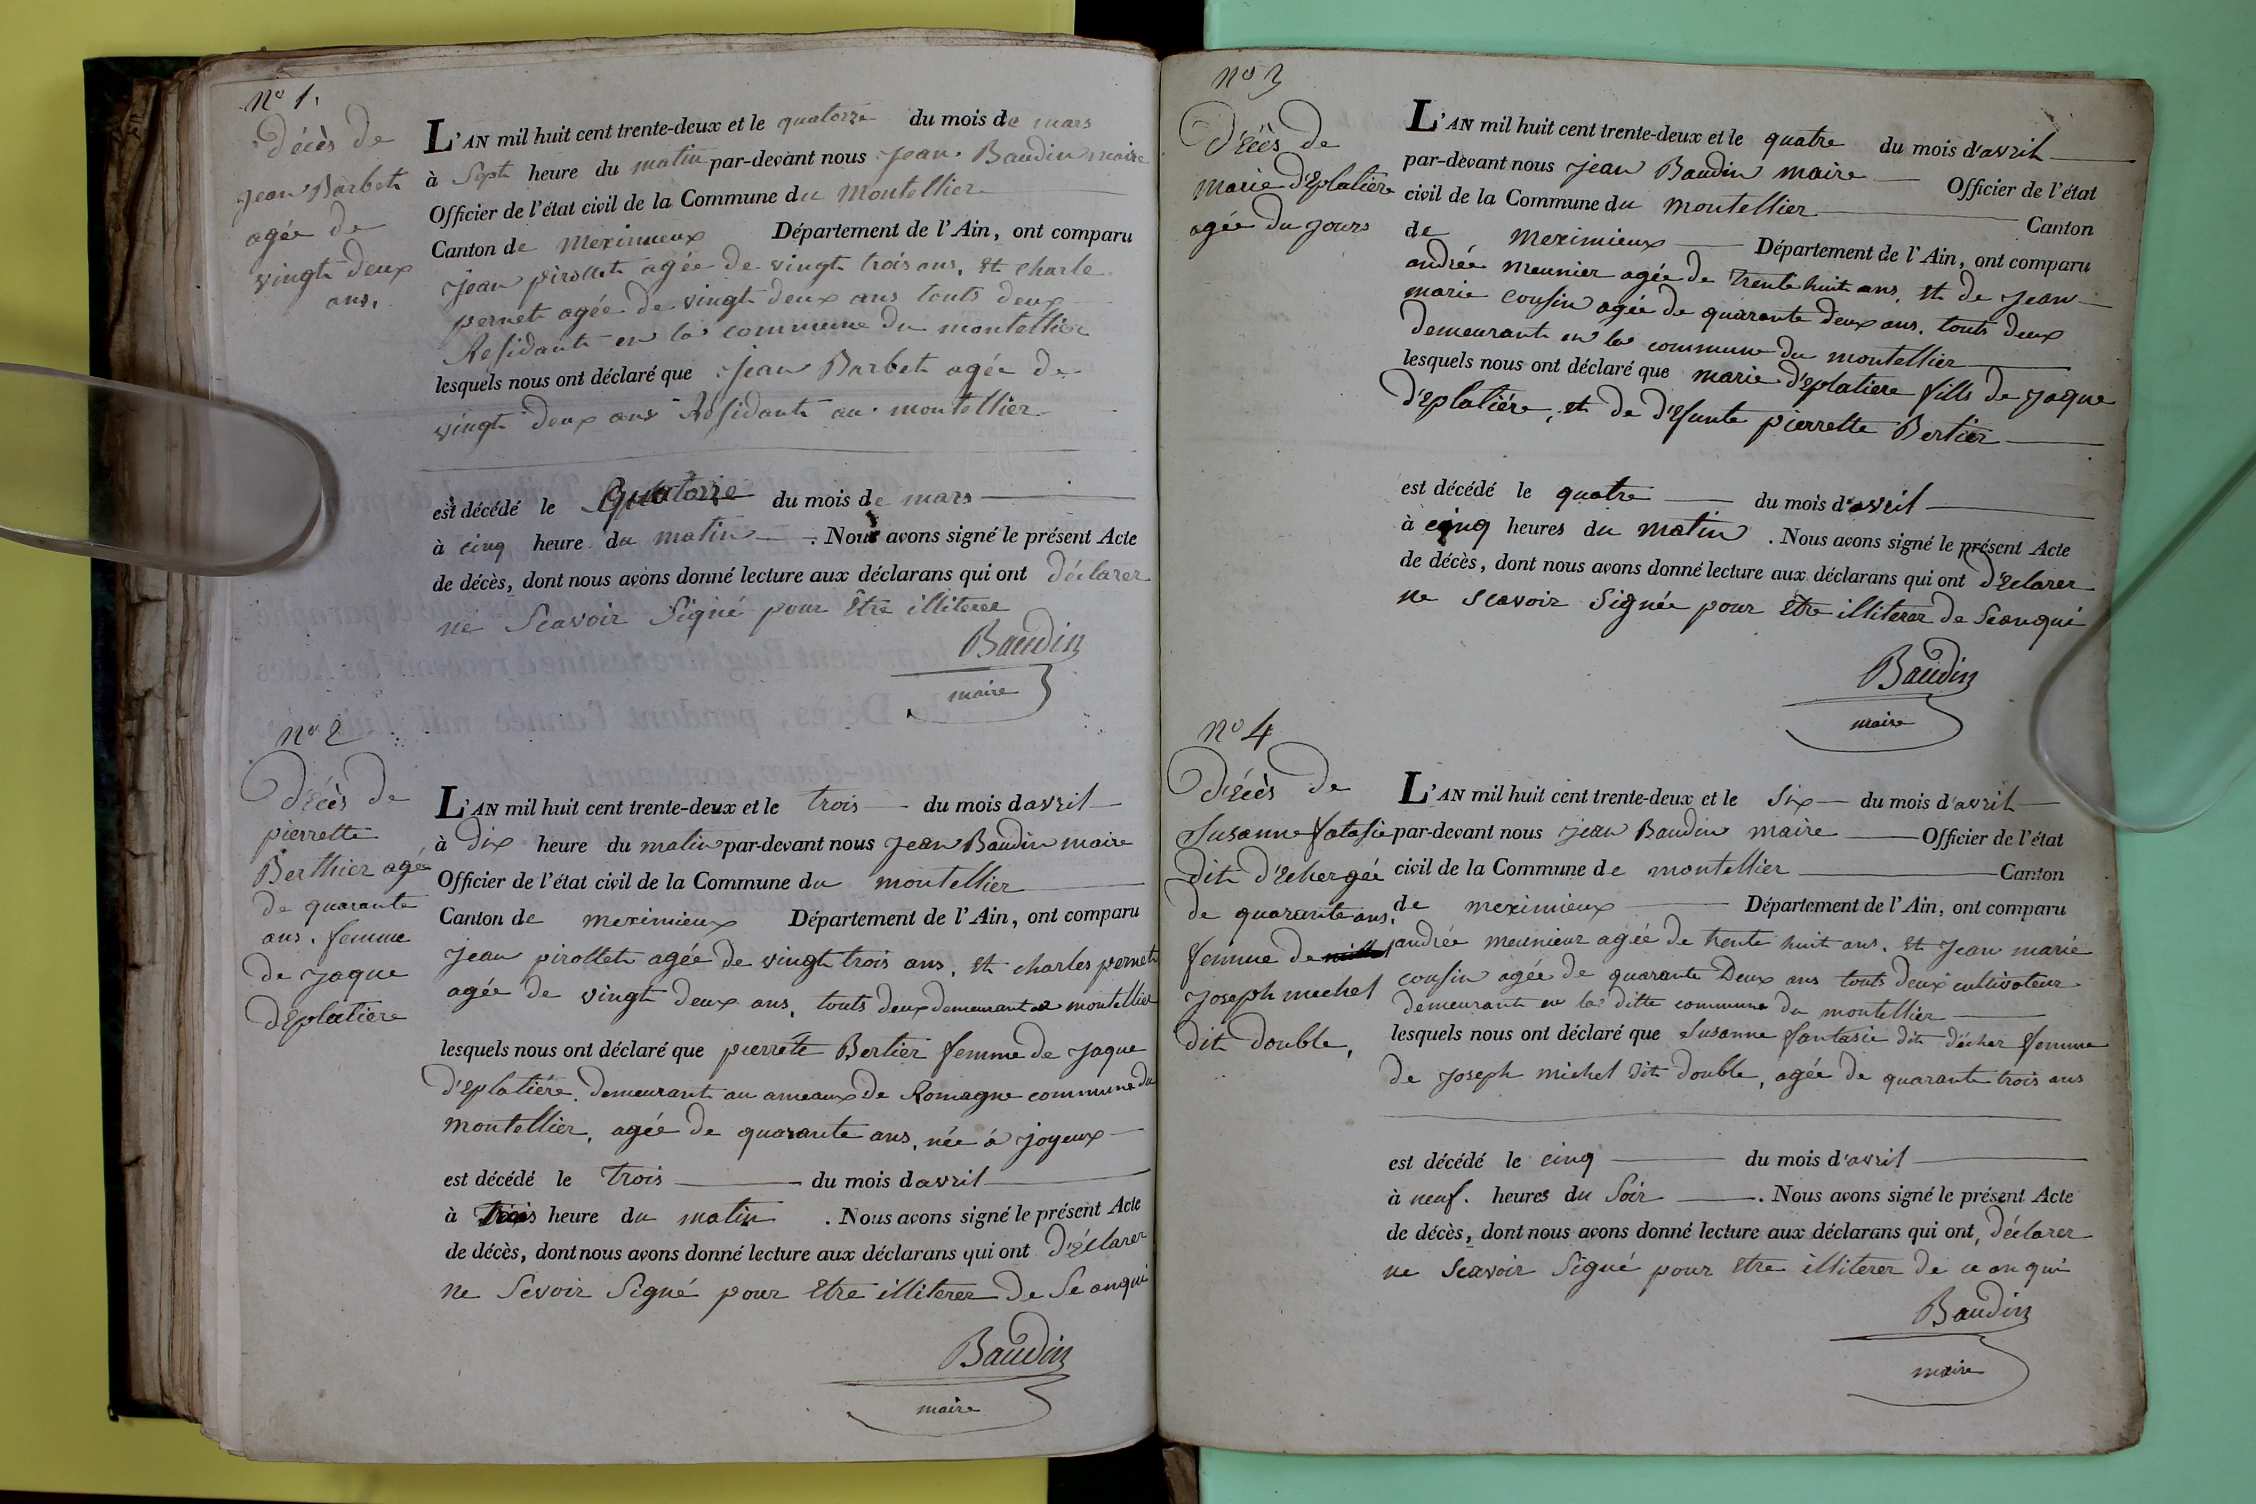 No 1.
Décès de
Jean Barbet
agée de
vingt deux
ans.
L'AN mil huit cent trente-deux et le quatorze du mois de mars
à Sept heure du matin par-devant nous Jean Baudin maire
Officier de l'état civil de la Commune du Montellier
Canton de Meximieux Département de l'Ain, ont comparu
Jean pirollet agée de vingt trois ans, et Charle
pernet agée de vingt deux ans touts deux
Résidant en la commune du montellier
lesquels nous ont déclaré que Jean Barbet agée de
vingt deux ans Résidant au montellier
est décédé le Quatorze du mois de mars
à cinq heure du matin . Nous avons signé le présent Acte
de décès, dont nous avons donné lecture aux déclarans qui ont déclarer
ne Scavoir Signé pour être illiterer
Baudin
maire
No 2
Décès de
pierrette
Berthier agé
de quarante
ans. femme
de Jaque
d'Eplatiere
L'AN mil huit cent trente-deux et le trois du mois d'avril
à dix heure du matin par-devant nous Jean Baudin maire
Officier de l'état civil de la Commune du montellier
Canton de meximieux Département de l'Ain, ont comparu
Jean pirollet agée de vingt trois ans, et charles pernet
agée de vingt deux ans, touts deux demeurant a montellier
lesquels nous ont déclaré que pierrete Bertier femme de Jaque
d'Eplatiére. demeurant au ameaux de Romagne commune du
montellier, agée de quarante ans, née à joyeux
est décédé le trois du mois d'avril
à trois heure du matin . Nous avons signé le présent Acte
de décès, dont nous avons donné lecture aux déclarans qui ont d'Eclarer
ne Sevoir Signé pour Etre illiterer de Se anqui
Baudin
maire
No 3
d'Eces de
marie d'Eplatière
agée du jours
L'AN mil huit cent trente-deux et le quatre du mois d'avril
par-devant nous Jean Baudin maire Officier de l'état
civil de la Commune du montellier Canton
de meximieux Département de l'Ain, ont comparu
andrée meunier agée de trente huit ans, et de Jean
marie Cousin agée de quarante deux ans, touts deux
demeurant en la commune du montellier
lesquels nous ont déclaré que marie d'Eplatiere fills de Jaque
d'Eplatiére, et de d'Efunte pierrette Bertier
est décédé le quatre du mois d'avril
à cinq heures du matin . Nous avons signé le présent Acte
de décès, dont nous avons donné lecture aux déclarans qui ont d'Eclarer
ne scavoir Signée pour Etre illiterer de Seanqui
Baudin
maire
No 4
d'Eces de
Susanne fatasie
dit d'Echer gée
de quarante ans,
femme de
Joseph mechel
dit double,
L'AN mil huit cent trente-deux et le Six du mois d'avril
par-devant nous Jean Baudin maire Officier de l'état
civil de la Commune de montellier Canton
de meximieux Département de l'Ain, ont comparu
andrée meunieur agée de trente huit ans, et Jean marie
cousin agée de quarante Deux ans touts deux cultivateur
demeurant en la ditte commune du montellier
lesquels nous ont déclaré que Susanne fantasie dit décher femme
de Joseph michel dit double, agée de quarante trois ans
est décédé le cinq du mois d'avril
à neuf. heures du Soir . Nous avons signé le présent Acte
de décès, dont nous avons donné lecture aux déclarans qui ont, déclarer
ne Scavoir Signé pour Etre illiterer de ce an qui
Baudin
maire